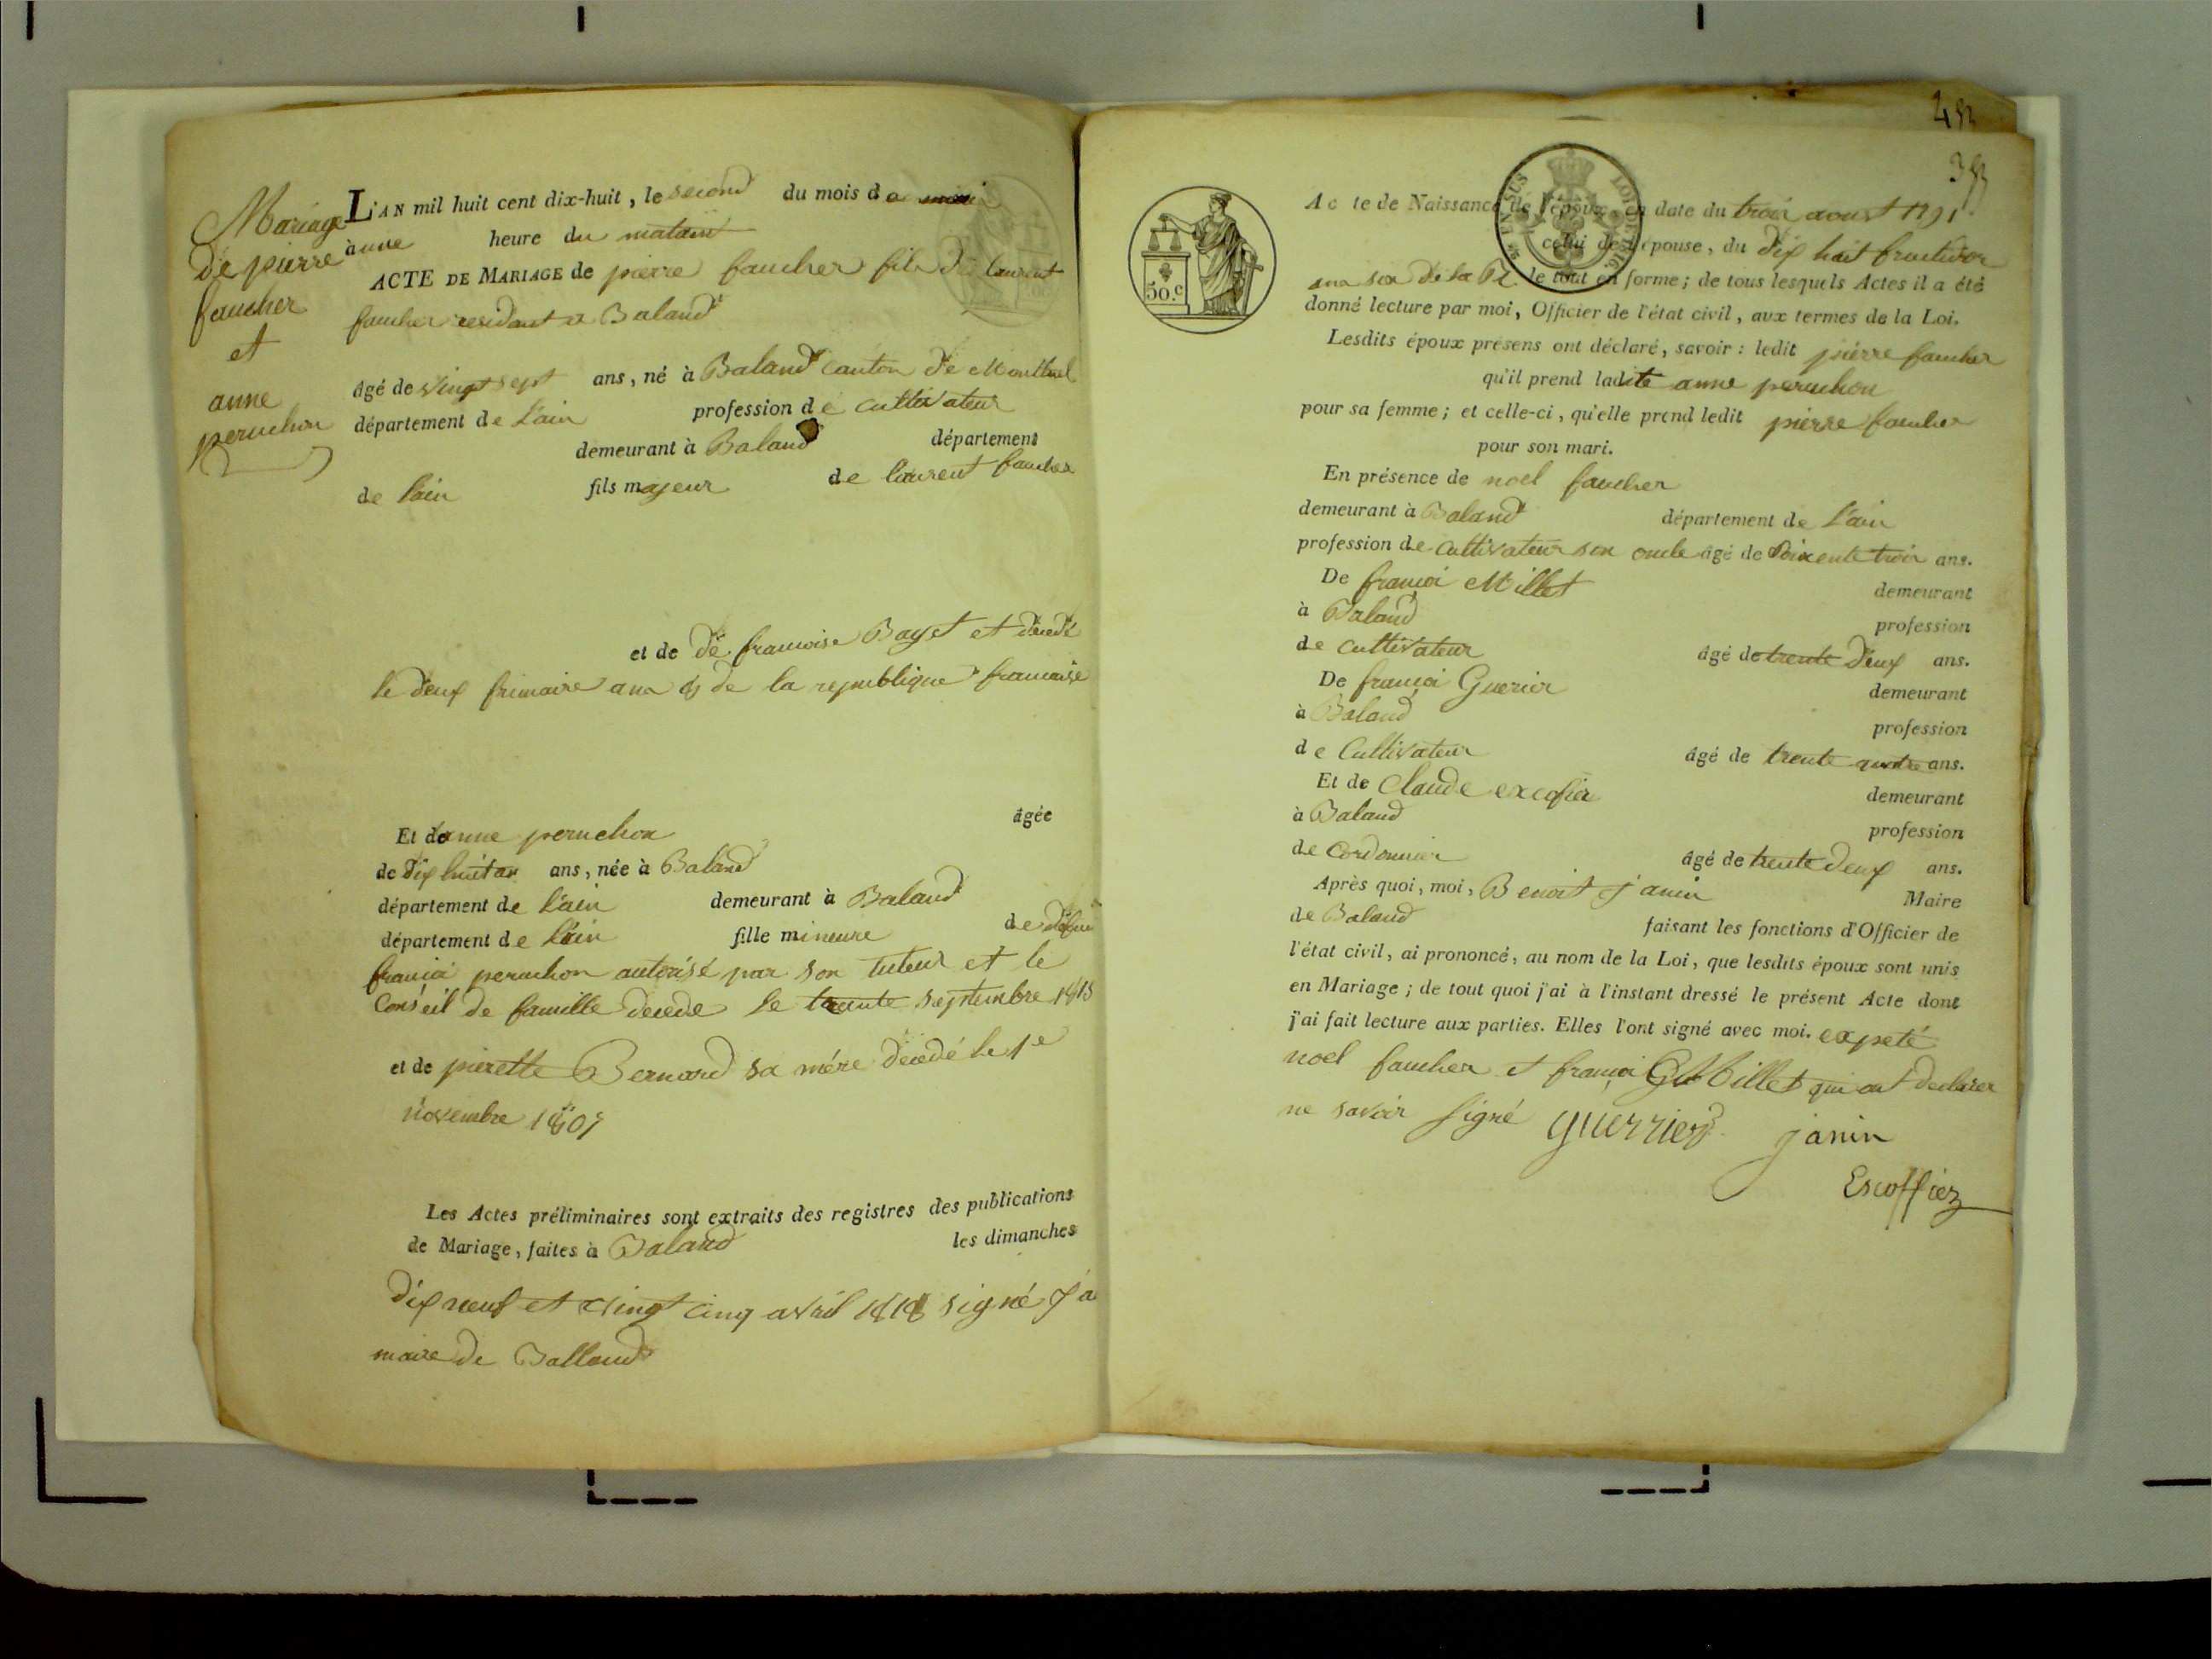 Mariage
de pierre
faucher
et
anne
peruchon
L'AN mil huit cent dix-huit, le second du mois de mai
à une heure du matain
ACTE DE MARIAGE de pierre faucher fils de laurent
faucher residant a Baland
âgé de vingt sept ans, né à Baland canton de Montluel
département de L'ain profession de cultivateur
demeurant à Baland département
de lain fils majeur de laurent faucher
et de de francoise Bayet et décedé
le deux frimaire ann 8 de la republique francaise
Et de anne peruchon âgée
de dix huit an ans, née à Baland
département de L'ain demeurant à Baland
département de L'ain fille mineure de defun
françoi peruchon autorisé par son tuteur et le
Conseil de famille decede le trente septembre 1815
et de pierette Bernard sa mére décedé le 1e
novembre 1807
Les Actes préliminaires sont extraits des registres des publications
de Mariage, faites à Baland les dimanches
dix neuf et vingt cinq avril 1818 signé Ja
maire de Balland
453
353
50.c
EN SUS
LOI DE 1816.
Acte de Naissance de l'époux en date du trois aoust 1791
celui de l'épouse, du dix huit fructidor
ann six de la le tout en forme; de tous lesquels Actes il a été
donné lecture par moi, Officier de l'état civil, aux termes de la Loi.
Lesdits époux présens ont déclaré, savoir: ledit pierre faucher
qu'il prend ladite anne peruchon
pour sa femme; et celle-ci, qu'elle prend ledit pierre faucher
pour son mari.
En présence de noel faucher
demeurant à Baland département de L'ain
profession de cultivateur son oncle âgé de soixente trois ans.
De françoi Millet demeurant
à Baland profession
de cultivateur âgé de trente deux ans.
De françoi Guerier demeurant
à Baland profession
de Cultivateur âgé de trente quatre ans.
Et de Claude excofier demeurant
à Baland profession
de Cordonnier âgé de trente deux ans.
Après quoi, moi, Benoit Janin Maire
de Baland faisant les fonctions d'Officier de
l'état civil, ai prononcé, au nom de la Loi, que lesdits époux sont unis
en Mariage; de tout quoi j'ai à l'instant dressé le présent Acte dont
j'ai fait lecture aux parties. Elles l'ont signé avec moi. expeté
noel faucher et françoi Millet qui ont declarer
ne savoir signé guerrier janin
Escoffiez